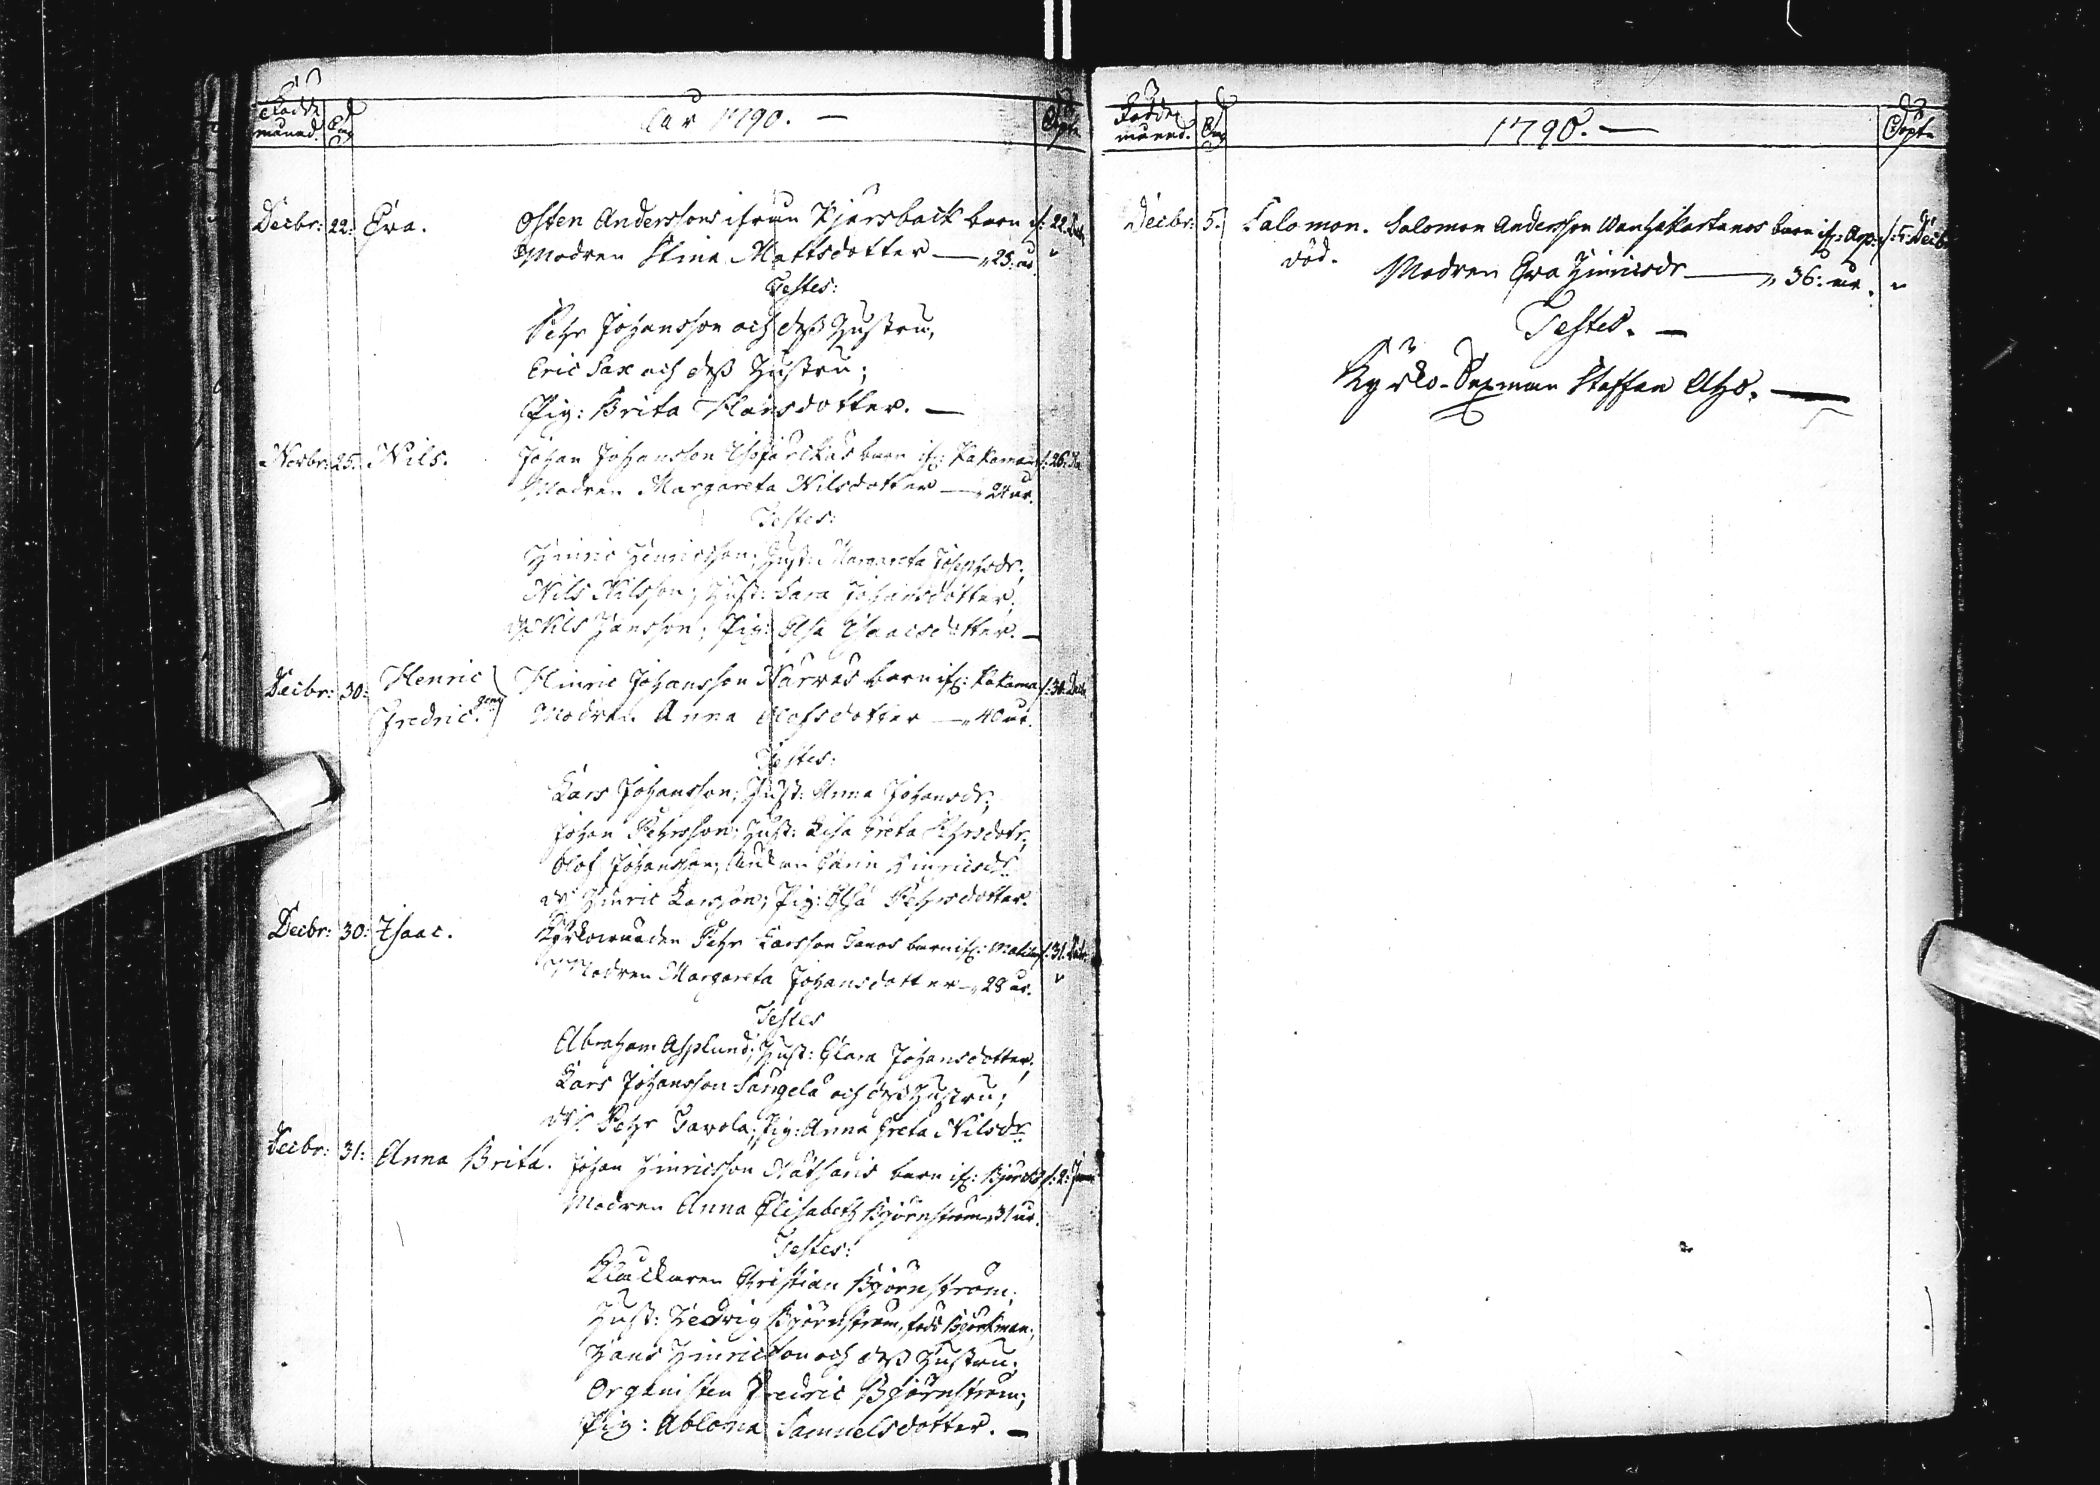 Födde månad. Dag Åår 1790. — Döpte
Decbr: 22: Eva. Östen Anderssons ifrån Kjärsbäck barn d: 22. Decb
Modren Stina Mattsdotter — „ 25: år.
Testes:
Pehr Johansson och dess Hustru,
Eric Sax och dess Hustru;
Pig: Brita Hansdotter. —
Novbr: 25: Nils. Johan Johansson barn ifr: Kakama d: 26: No
Modren Margareta Nilsdotter — „ 24 år.
Testes:
Hinric Henricsson; Hust: Margareta Josephsdr;
Nils Nilsson; Hust: Sara Johansdotter;
Nils Hansson; Pig: Elsa Isaacsdotter. —
Decbr: 30: Henric Hinric Johansson Narvas barn ifr: Kakama d: 30. Decb
Fredric. gem Modren Anna Olofsdotter — „ 40 år.
Testes:
Lars Johansson; Hust: Anna Johansdr;
Johan Pehrsson; Hust: Lisa Greta Pehrsdotr;
Olof Johansson; Änkan Carin Hinricsdr
dr Hinric Larsson; Pig: Elsa Pehrsdotter.
Decbr: 30: Isaac. Kyrkowärden Pehr Larsson barn ifr: d: 31. Decb
Modren Margareta Johansdotter — „ 28 år.
Testes
Abraham Asplund; Hust: Clara Johansdotter;
Lars Johansson Sangela och dess Hustru;
Pehr Tavola; Pig: Anna Greta Nilsdr
Decbr: 31: Anna Brita. Johan Hinricsson barn ifr: d: 2: Janu
Modren Anna Elisabeth Björnström „ 31 år.
Testes:
Klåckaren Christian Björnström;
Hust: Hedvig Björnström, född Björkman;
Hans Hinricsson och dess Hustru;
Organisten Fredric Björnström;
Pig: Ablona Samuelsdotter. —
Födde månad. Dag 1790. — Döpte
Decbr: 5. Salomon. Salomon Andersson barn ifr: d: 5: Decb
död. Modren Eva Hinricsdr — „ 36: år.
Testes. —
Kyrko-Sexman Staffan Aho. —